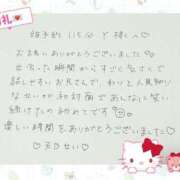 お礼
姫予約 115分 Y様へ♡
お誘いありがとうございました
出会った瞬間からすごく気さくで
話しやすいお兄さんで、わりと人見知り
なせいが初対面であんなに笑い
続けたの初めてです
優しい時間をありがとうございました♡
天口せい